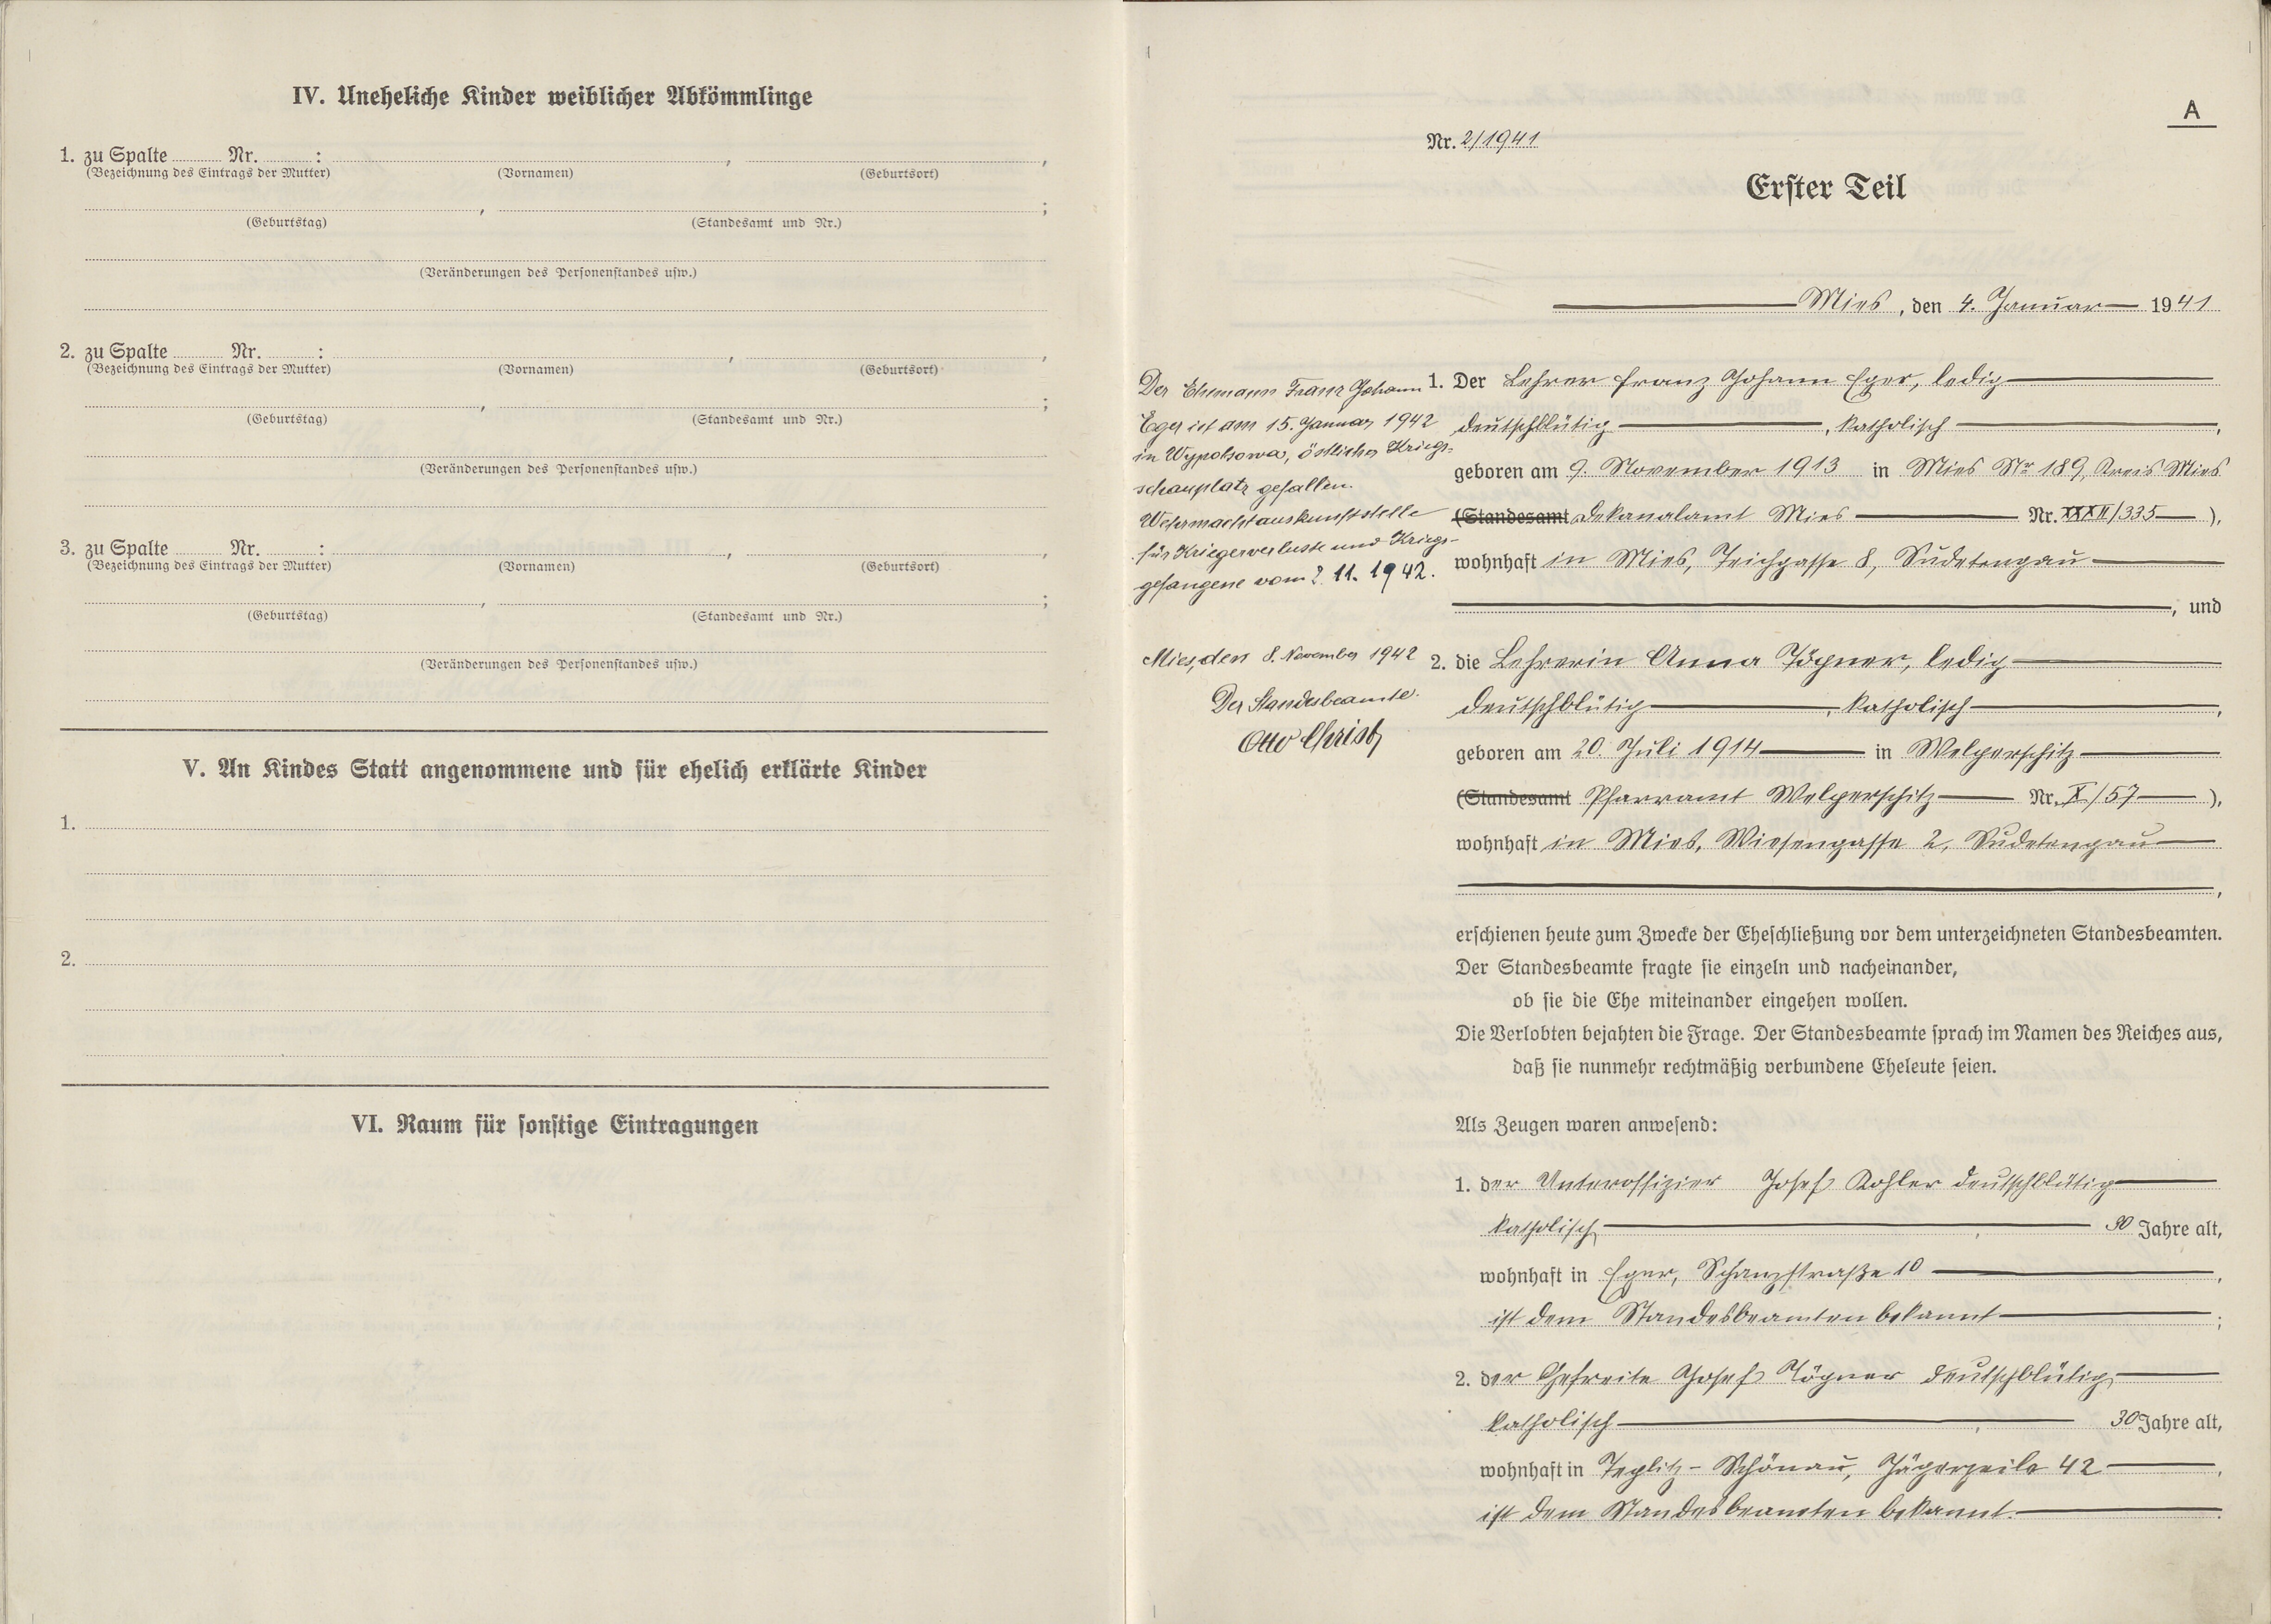 IV. Uneheliche Kinder weiblicher Abkömmlinge
1. zu Spalte Nr. : , ,
(Bezeichnung des Eintrags der Mutter) (Vornamen) (Geburtsort)
, ;
(Geburtstag) (Standesamt und Nr.)
(Veränderungen des Personenstandes usw.)
2. zu Spalte Nr. : , ,
(Bezeichnung des Eintrags der Mutter) (Vornamen) (Geburtsort)
, ;
(Geburtstag) (Standesamt und Nr.)
(Veränderungen des Personenstandes usw.)
3. zu Spalte Nr. : , ,
(Bezeichnung des Eintrags der Mutter) (Vornamen) (Geburtsort)
, ;
(Geburtstag) (Standesamt und Nr.)
(Veränderungen des Personenstandes usw.)
V. An Kindes Statt angenommene und für ehelich erklärte Kinder
1.
2.
VI. Raum für sonstige Eintragungen
A
Nr. 2/1941
Erster Teil
Mies, den 4. Januar 1941
Der Ehemann Franz Johann
Eger ist am 15. Januar 1942
in Wypolsowa, östlicher Kriegs-
schauplatz gefallen.
Wehrmachtauskunftstelle
für Kriegerverluste und Kriegs-
gefangene vom 2. 11. 1942.
Mies, den 8. November 1942
Der Standesbeamte.
Otto Christ
1. Der Lehrer Franz Johann Eger, ledig
deutschblütig, katholisch,
geboren am 9. November 1913 in Mies Nr 189, Kreis Mies
(Standesamt Dekanalamt Mies Nr. XXXII/335),
wohnhaft in Mies, Teichgasse 8, Sudetengau
, und
2. die Lehrerin Anna Tögner, ledig
deutschblütig, katholisch,
geboren am 20. Juli 1914 in Welperschitz
(Standesamt Pfarramt Welperschitz Nr. X/57),
wohnhaft in Mies, Wiesengasse 2, Sudetengau
,
erschienen heute zum Zwecke der Eheschließung vor dem unterzeichneten Standesbeamten.
Der Standesbeamte fragte sie einzeln und nacheinander,
ob sie die Ehe miteinander eingehen wollen.
Die Verlobten bejahten die Frage. Der Standesbeamte sprach im Namen des Reiches aus,
daß sie nunmehr rechtmäßig verbundene Eheleute seien.
Als Zeugen waren anwesend:
1. der Unteroffizier Josef Kohler deutschblütig
katholisch, Jahre alt,
wohnhaft in Eger, Schanzstraße 10,
ist dem Standesbeamten bekannt;
2. der Gefreite Josef Tögner deutschblütig,
katholisch, 30 Jahre alt,
wohnhaft in Teplitz-Schönau, Jägerzeile 42,
ist dem Standesbeamten bekannt.